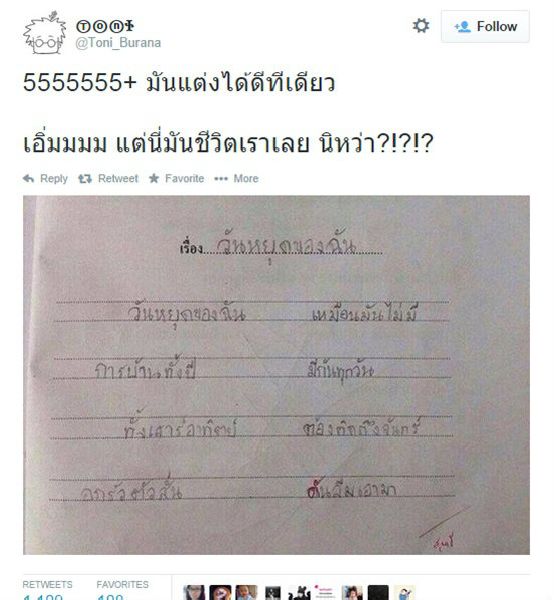 Ⓣⓞⓝⓘ
@Toni_Burana
Follow
5555555+ มันแต่งได้ดีทีเดียว
เอิ่มมมม แต่นี่มันชีวิตเราเลย นิหว่า?!?!?
Reply Retweet Favorite More
เรื่อง วันหยุดของฉัน
วันหยุดของฉัน เหมือนมันไม่มี
การบ้านทั้งปี มีกันทุกวัน
ทั้งเสาร์อาทิตย์ ต้องคิดถึงจันทร์
ดันลืมเอามา
RETWEETS FAVORITES